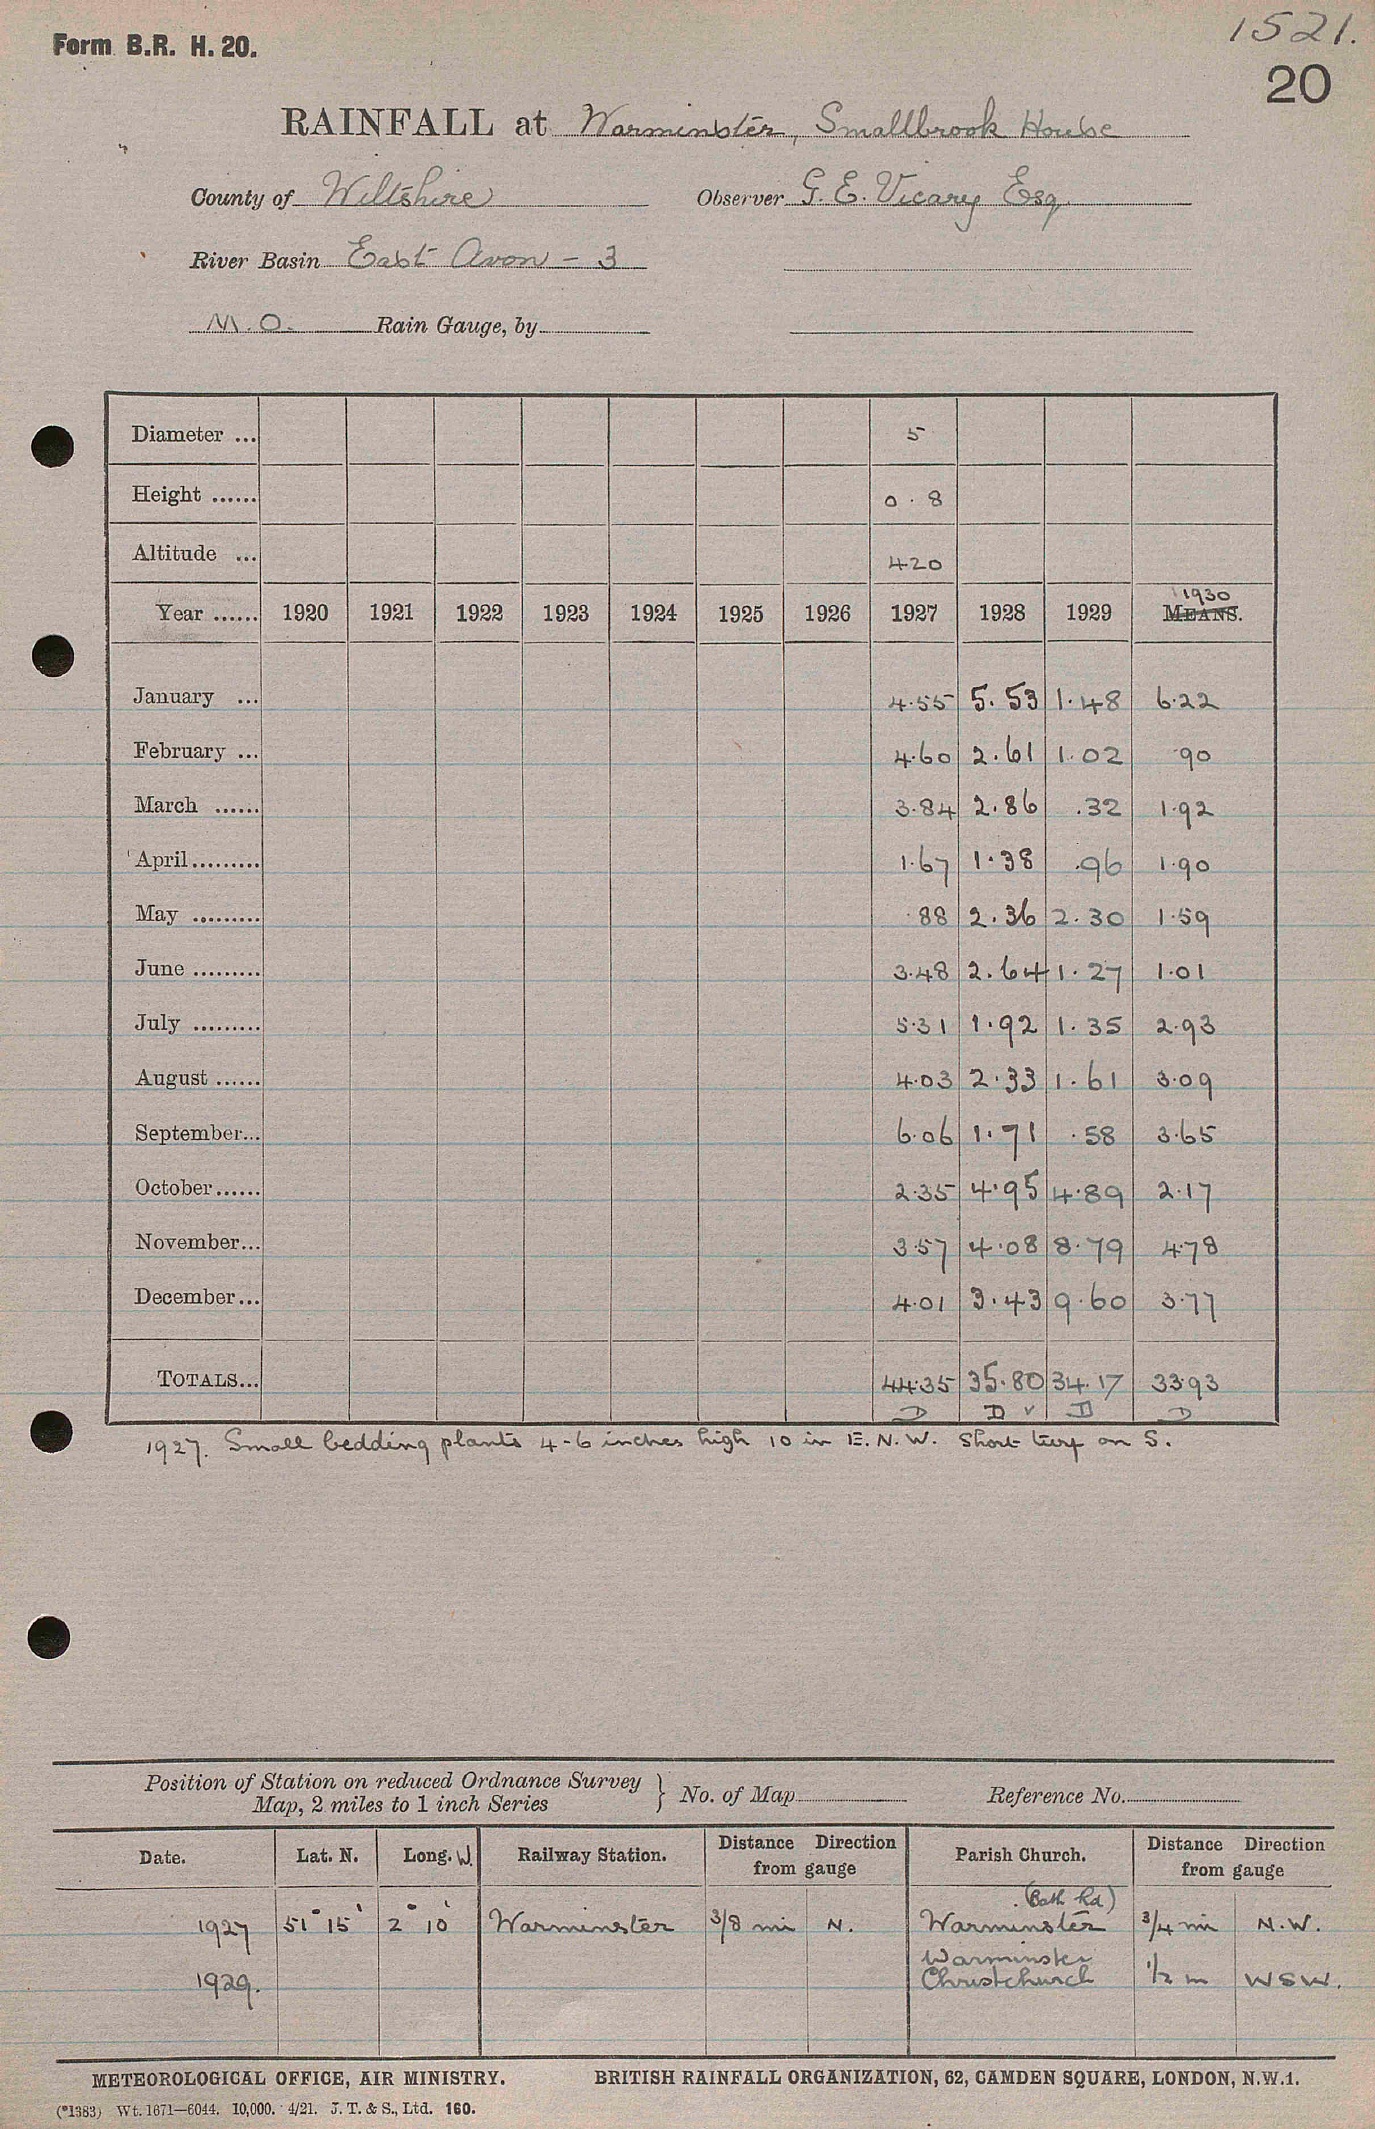 Form B.R. H. 20.
1521.
20
RAINFALL at Warminster, Smallbrook House
County of Wiltshire Observer G. E. Vicary Esq.
River Basin East Avon - 3
M.O. Rain Gauge, by
Diameter ... 5
Height ...... 0.8
Altitude ... 420
1930
Year ...... 1920 1921 1922 1923 1924 1925 1926 1927 1928 1929 MEANS.
January ... 4.55 5.53 1.48 6.22
February ... 4.60 2.61 1.02 .90
March ...... 3.84 2.86 .32 1.92
April......... 1.67 1.38 .96 1.90
May ......... .88 2.36 2.30 1.59
June ......... 3.48 2.64 1.27 1.01
July ......... 5.31 1.92 1.35 2.93
August ...... 4.03 2.33 1.61 3.09
September... 6.06 1.71 .58 3.65
October...... 2.35 4.95 4.89 2.17
November... 3.57 4.08 8.79 4.78
December... 4.01 3.43 9.60 3.77
TOTALS... 44.35 35.80 34.17 33.93
D D v D D
1927. Small bedding plants 4-6 inches high 10 in E.N.W. Short turf on S.
Position of Station on reduced Ordnance Survey
Map, 2 miles to 1 inch Series } No. of Map Reference No.
Date. Lat. N. Long. W. Railway Station. Distance Direction from gauge Parish Church. Distance Direction from gauge
(Bath Rd)
1927 51° 15' 2° 10' Warminster 3/8 mi N. Warminster 3/4 mi N.W.
Warminster
1929. Christchurch 1/2 m WSW.
METEOROLOGICAL OFFICE, AIR MINISTRY. BRITISH RAINFALL ORGANIZATION, 62, CAMDEN SQUARE, LONDON, N.W.1.
(*1383) Wt. 1671—6044. 10,000. 4/21. J. T. & S., Ltd. 160.